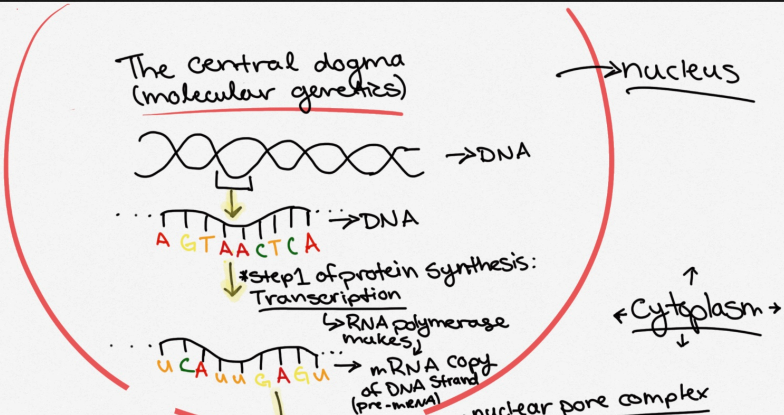 The central dogma
(molecular genetics)
→nucleus
→DNA
→DNA
A G T A A C T C A
*Step 1 of protein synthesis:
Transcription
↳RNA polymerase
makes
←Cytoplasm→
U C A U U G A G U
→ mRNA copy
of DNA strand
(pre-mRNA)
nuclear pore complex